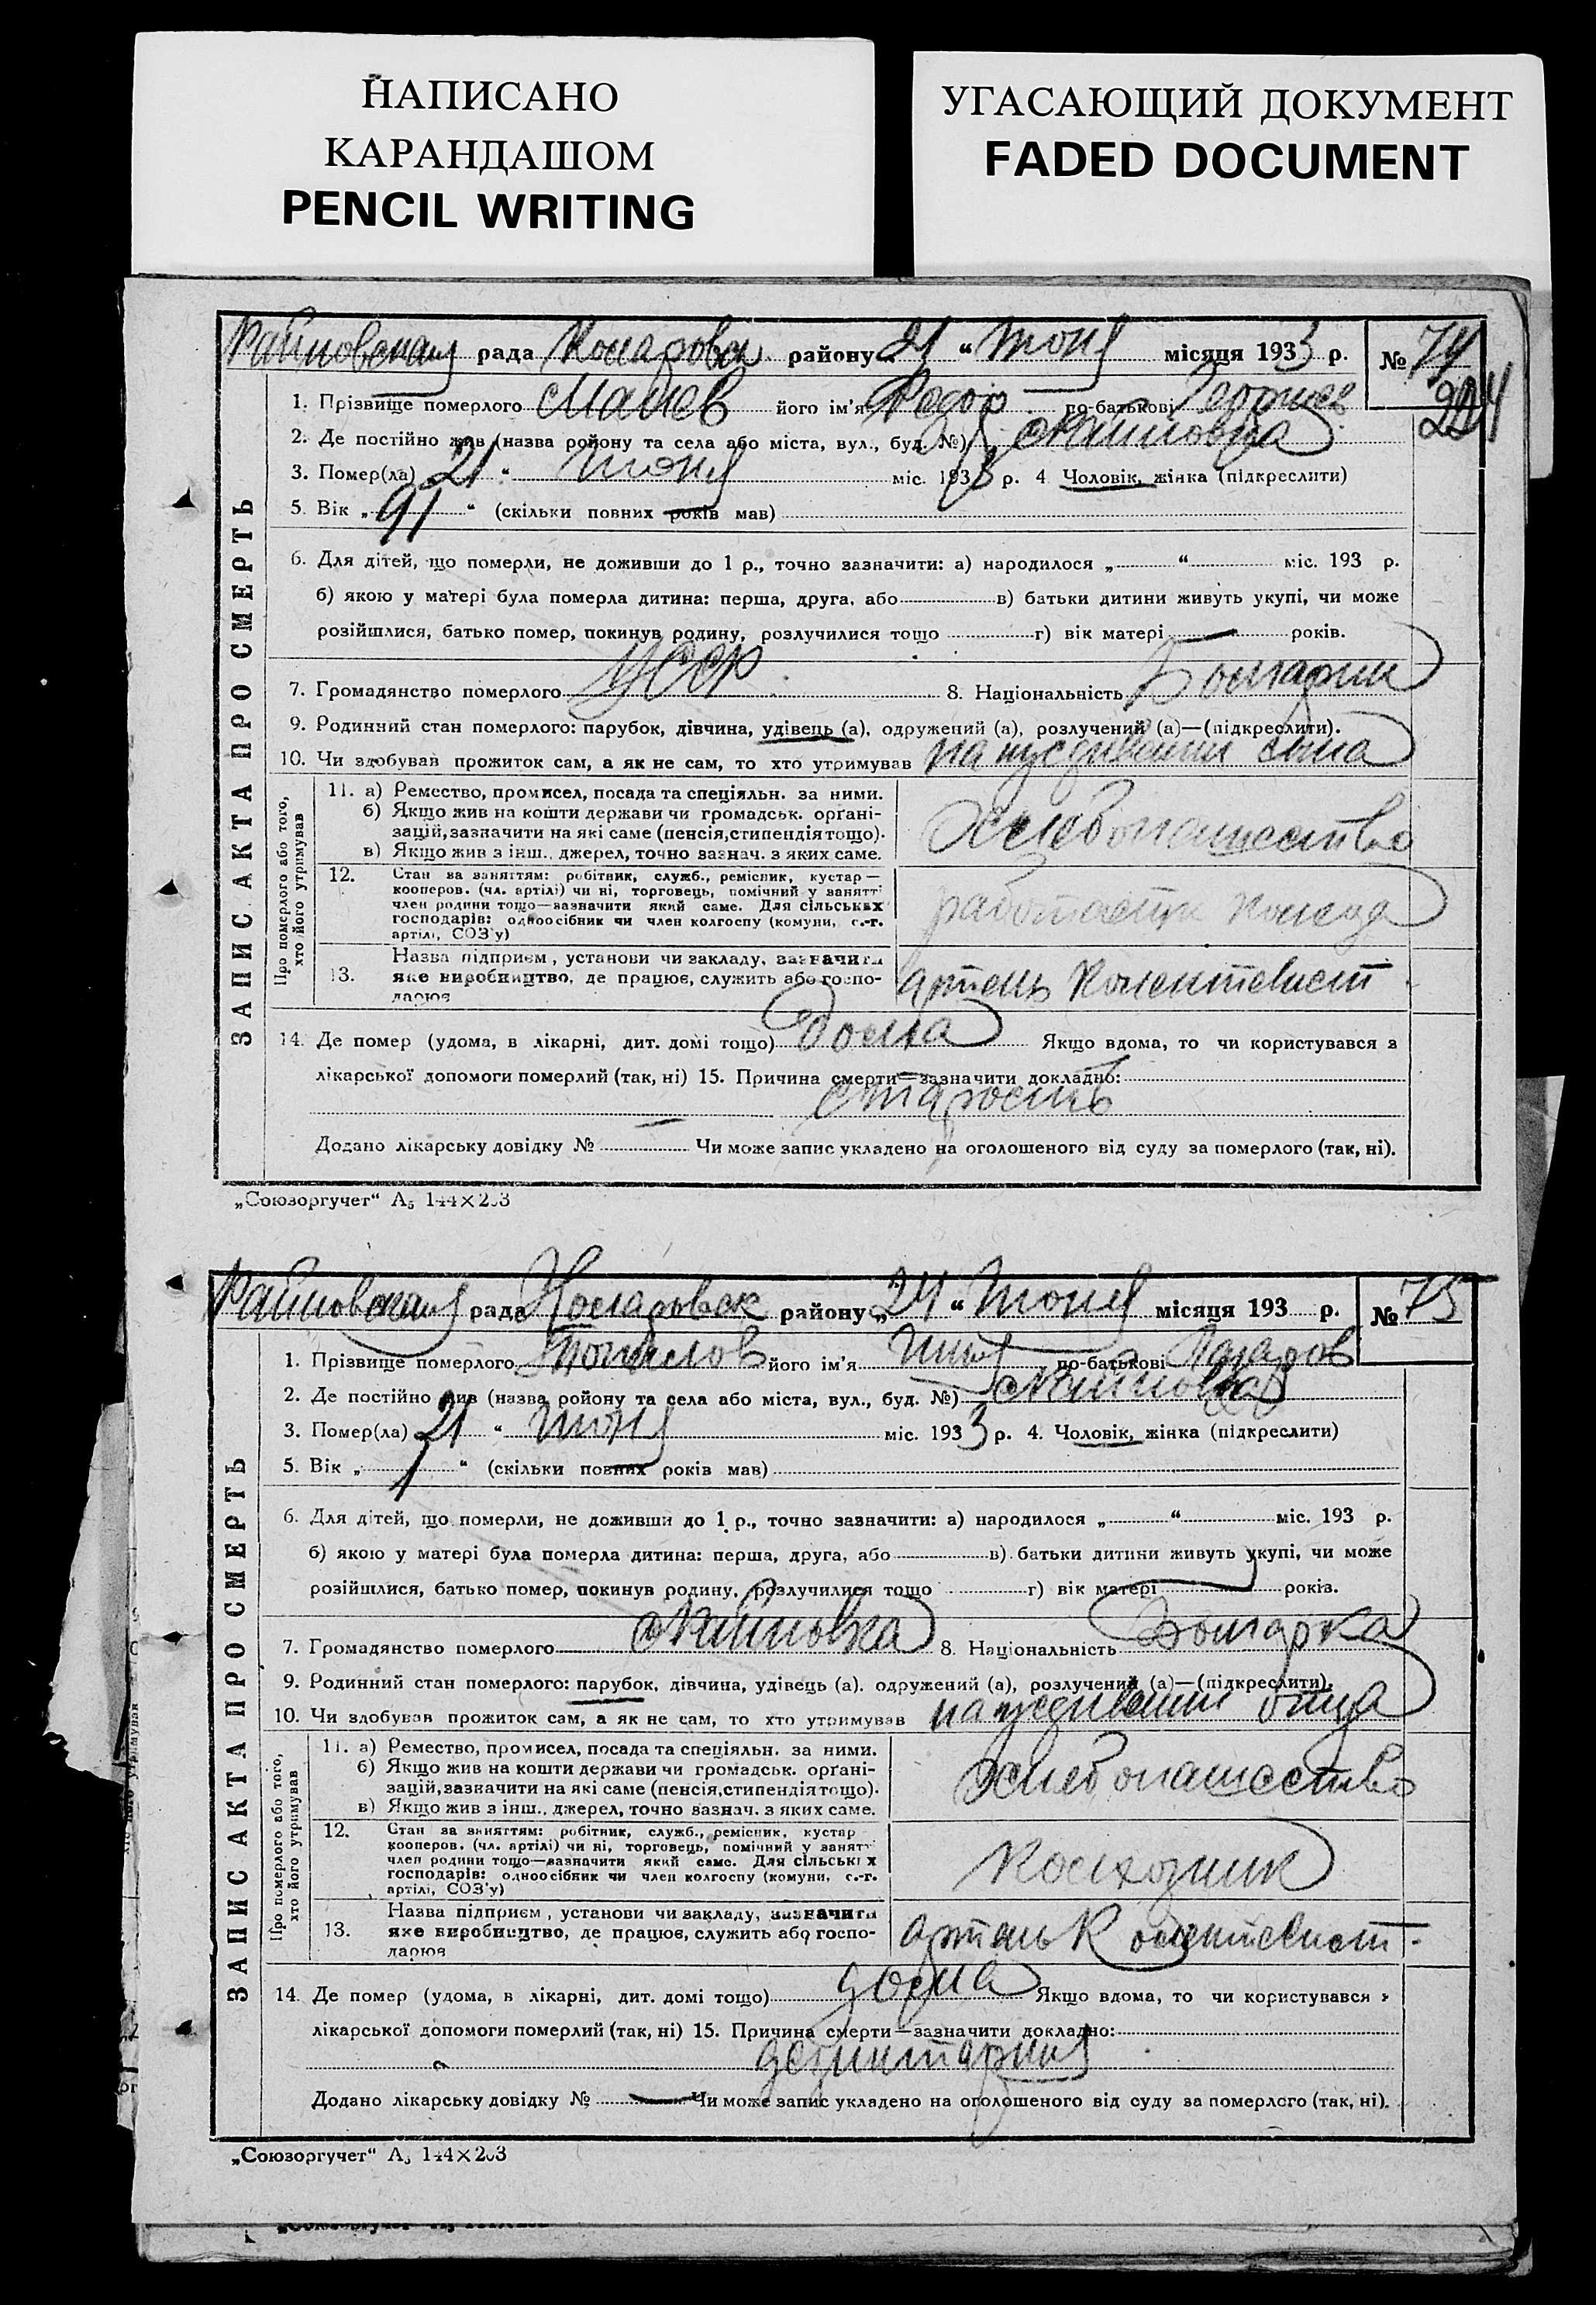 НАПИСАНО
КАРАНДАШОМ
PENCIL WRITING
УГАСАЮЩИЙ ДОКУМЕНТ
FADED DOCUMENT
рада района „21 “ Июня місяця 1933 р. № 74
1. Прізвище померлого його ім'я Федор по-батькові Георгиев
224
2. Де постійно жив (назва ройону та села або міста, вул., буд. №)
3. Помер(ла) 21 “ Июня міс. 1933 р. 4. Чоловік, жінка (підкреслити)
5. Вік „ 91 “ (скільки повних років мав)
6. Для дітей, що померли, не доживши до 1 р., точно зазначити: а) народилося „ “ міс. 193 р.
б) якою у матері була померла дитина: перша, друга, або в) батьки дитини живуть укупі, чи може
розійшлися, батько помер, покинув родину, розлучилися тощо г) вік матері — років.
7. Громадянство померлого УССР 8. Національність Болгарин
9. Родинний стан померлого: парубок, дівчина, удівець (а), одружений (а), розлучений (а)—(підкреслити).
10. Чи здобував прожиток сам, а як не сам, то хто утримував на иждивении сына
ЗАПИС АКТА ПРО СМЕРТЬ
Про померлого або того, хто його утримував
11. а) Ремество, промисел, посада та спеціяльн. за ними.
б) Якщо жив на кошти держави чи громадськ. орґані-
зацій, зазначити на які саме (пенсія, стипендія тощо).
в) Якщо жив з інш., джерел, точно зазнач. з яких саме.
Хлебопашество
12. Стан за заняттям: робітник, служб., ремісник, кустар—
кооперов. (чл. артілі) чи ні, торговець, помічний у занятті
член родини тощо—зазначити який саме. Для сільських
господарів: одноосібник чи член колгоспу (комуни, с.-г.
артілі, СОЗ'у)
13. Назва підприєм, установи чи закладу, зазначити
яке виробництво, де працює, служить або госпо-
дарює
артель Колективист
14. Де помер (удома, в лікарні, дит. домі тощо) дома Якщо вдома, то чи користувався з
лікарської допомоги померлий (так, ні) 15. Причина смерти—зазначити докладно:
старость
Додано лікарську довідку № — Чи може запис укладено на оголошеного від суду за померлого (так, ні).
„Союзоргучет“ А₅ 144×203
рада района „21 “ Июня місяця 193 р. № 75
1. Прізвище померлого його ім'я по-батькові Лазаров
2. Де постійно жив (назва ройону та села або міста, вул., буд. №)
3. Помер(ла) 21 “ Июня міс. 1933 р. 4. Чоловік, жінка (підкреслити)
5. Вік „ 1 “ (скільки повних років мав)
6. Для дітей, що померли, не доживши до 1 р., точно зазначити: а) народилося „ “ міс. 193 р.
б) якою у матері була померла дитина: перша, друга, або в) батьки дитини живуть укупі, чи може
розійшлися, батько помер, покинув родину, розлучилися тощо г) вік матері років.
7. Громадянство померлого 8. Національність Болгарка
9. Родинний стан померлого: парубок, дівчина, удівець (а), одружений (а), розлучений (а)—(підкреслити).
10. Чи здобував прожиток сам, а як не сам, то хто утримував на иждивении отца
ЗАПИС АКТА ПРО СМЕРТЬ
Про померлого або того, хто його утримував
11. а) Ремество, промисел, посада та спеціяльн. за ними.
б) Якщо жив на кошти держави чи громадськ. орґані-
зацій, зазначити на які саме (пенсія, стипендія тощо).
в) Якщо жив з інш., джерел, точно зазнач. з яких саме.
Хлебопашество
12. Стан за заняттям: робітник, служб., ремісник, кустар
кооперов. (чл. артілі) чи ні, торговець, помічний у занятті
член родини тощо—зазначити який саме. Для сільських
господарів: одноосібник чи член колгоспу (комуни, с.-г.
артілі, СОЗ'у)
Колхозник
13. Назва підприєм, установи чи закладу, зазначити
яке виробництво, де працює, служить або госпо-
дарює
артель Колективист
14. Де помер (удома, в лікарні, дит. домі тощо) дома Якщо вдома, то чи користувався з
лікарської допомоги померлий (так, ні) 15. Причина смерти—зазначити докладно:
Додано лікарську довідку № — Чи може запис укладено на оголошеного від суду за померлого (так, ні).
„Союзоргучет“ А₅ 144×203